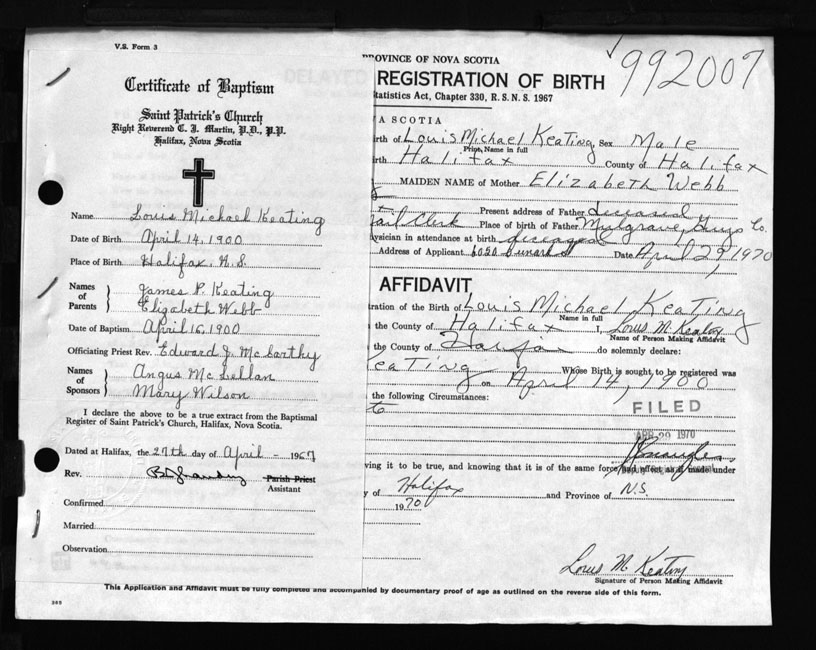 V.S. Form 3
Certificate of Baptism
Saint Patrick's Church
Right Reverend C. J. Martin, P.D., P.P.
Halifax, Nova Scotia
Name Louis Michael Keating
Date of Birth April 14, 1900
Place of Birth Halifax, N.S.
Names of Parents James P. Keating
Elizabeth Webb
Date of Baptism April 16, 1900
Officiating Priest Rev. Edward J. McCarthy
Names of Sponsors Angus McLellan
Mary Wilson
I declare the above to be a true extract from the Baptismal
Register of Saint Patrick's Church, Halifax, Nova Scotia.
Dated at Halifax, the 27th day of April - 1967
Rev. Parish Priest
Assistant
Confirmed
Married
Observation
PROVINCE OF NOVA SCOTIA
992007
DELAYED REGISTRATION OF BIRTH
Statistics Act, Chapter 330, R.S.N.S. 1967
VA SCOTIA
irth of Louis Michael Keating Sex Male
Print, Name in full
irth Halifax County of Halifax
MAIDEN NAME of Mother Elizabeth Webb
Present address of Father deceased
Mail Clerk Place of birth of Father Mulgrave, Guys Co.
ysician in attendance at birth deceased
Address of Applicant 6020 Date April 29, 1970
AFFIDAVIT
tration of the Birth of Louis Michael Keating
Name in full
the County of Halifax I, Louis M. Keating
Name of Person Making Affidavit
the County of Halifax do solemnly declare:
Keating Whose Birth is sought to be registered was
on April 14, 1900
the following Circumstances:
FILED
APR 29 1970
ving it to be true, and knowing that it is of the same force and effect as if made under
y of Halifax and Province of N.S.
1970
Louis M. Keating
Signature of Person Making Affidavit
This Application and Affidavit must be fully completed and accompanied by documentary proof of age as outlined on the reverse side of this form.